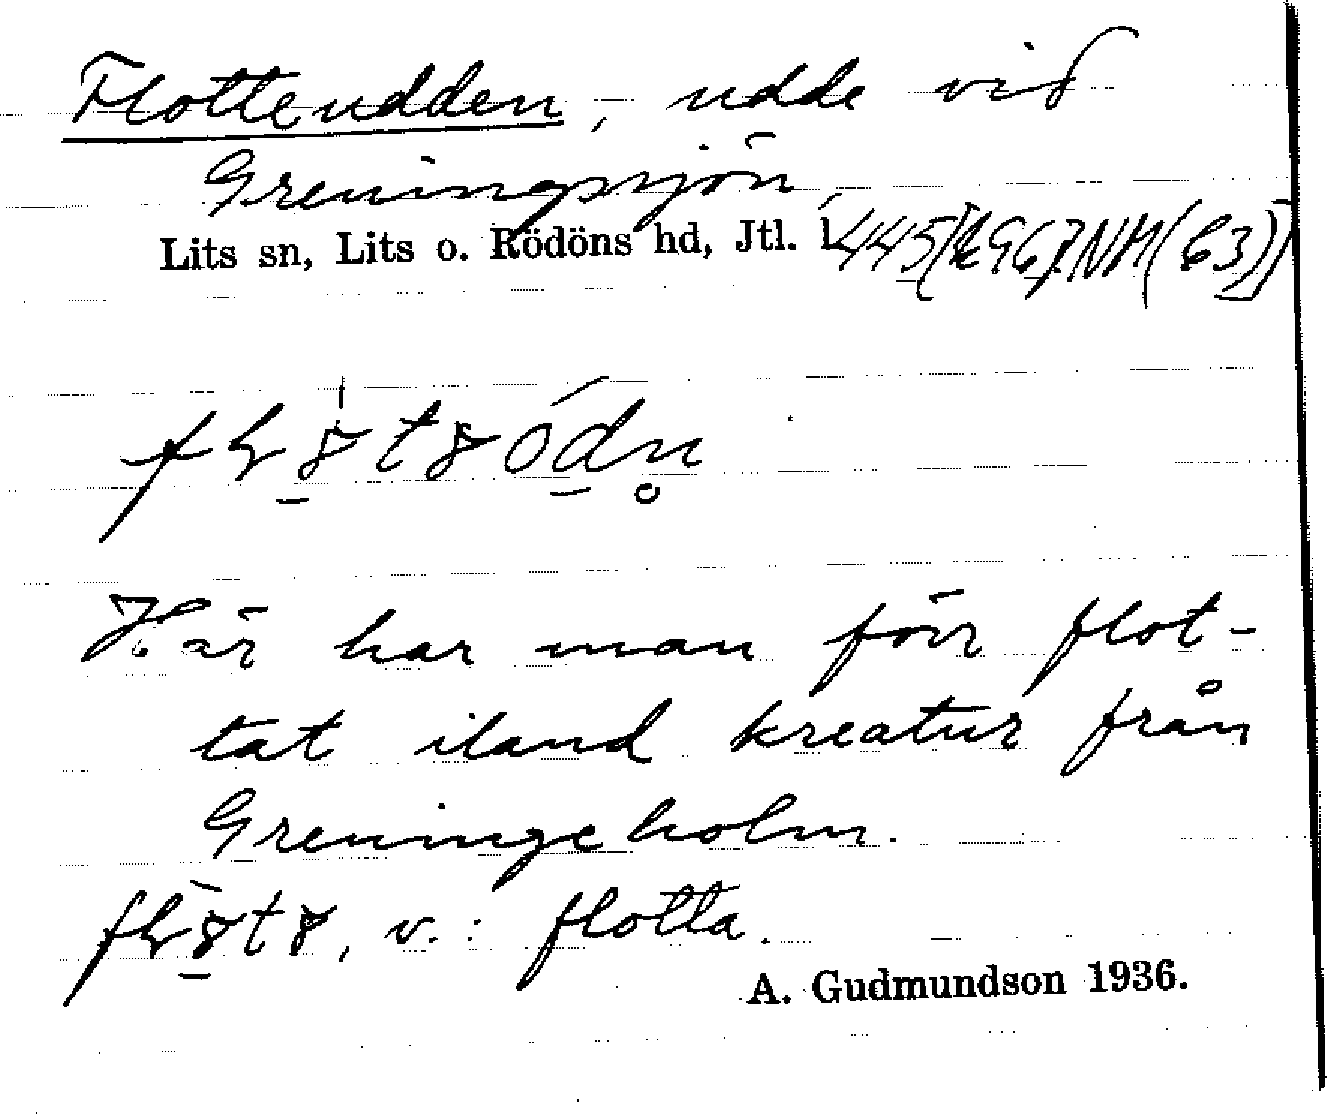 Flotteudden, udde vid
Greningsjön
Lits sn, Lits o. Rödöns hd, Jtl. l.
Här har man förr flot-
tat iland kreatur från
Greningeholm.
v.: flotta.
A. Gudmundson 1936.